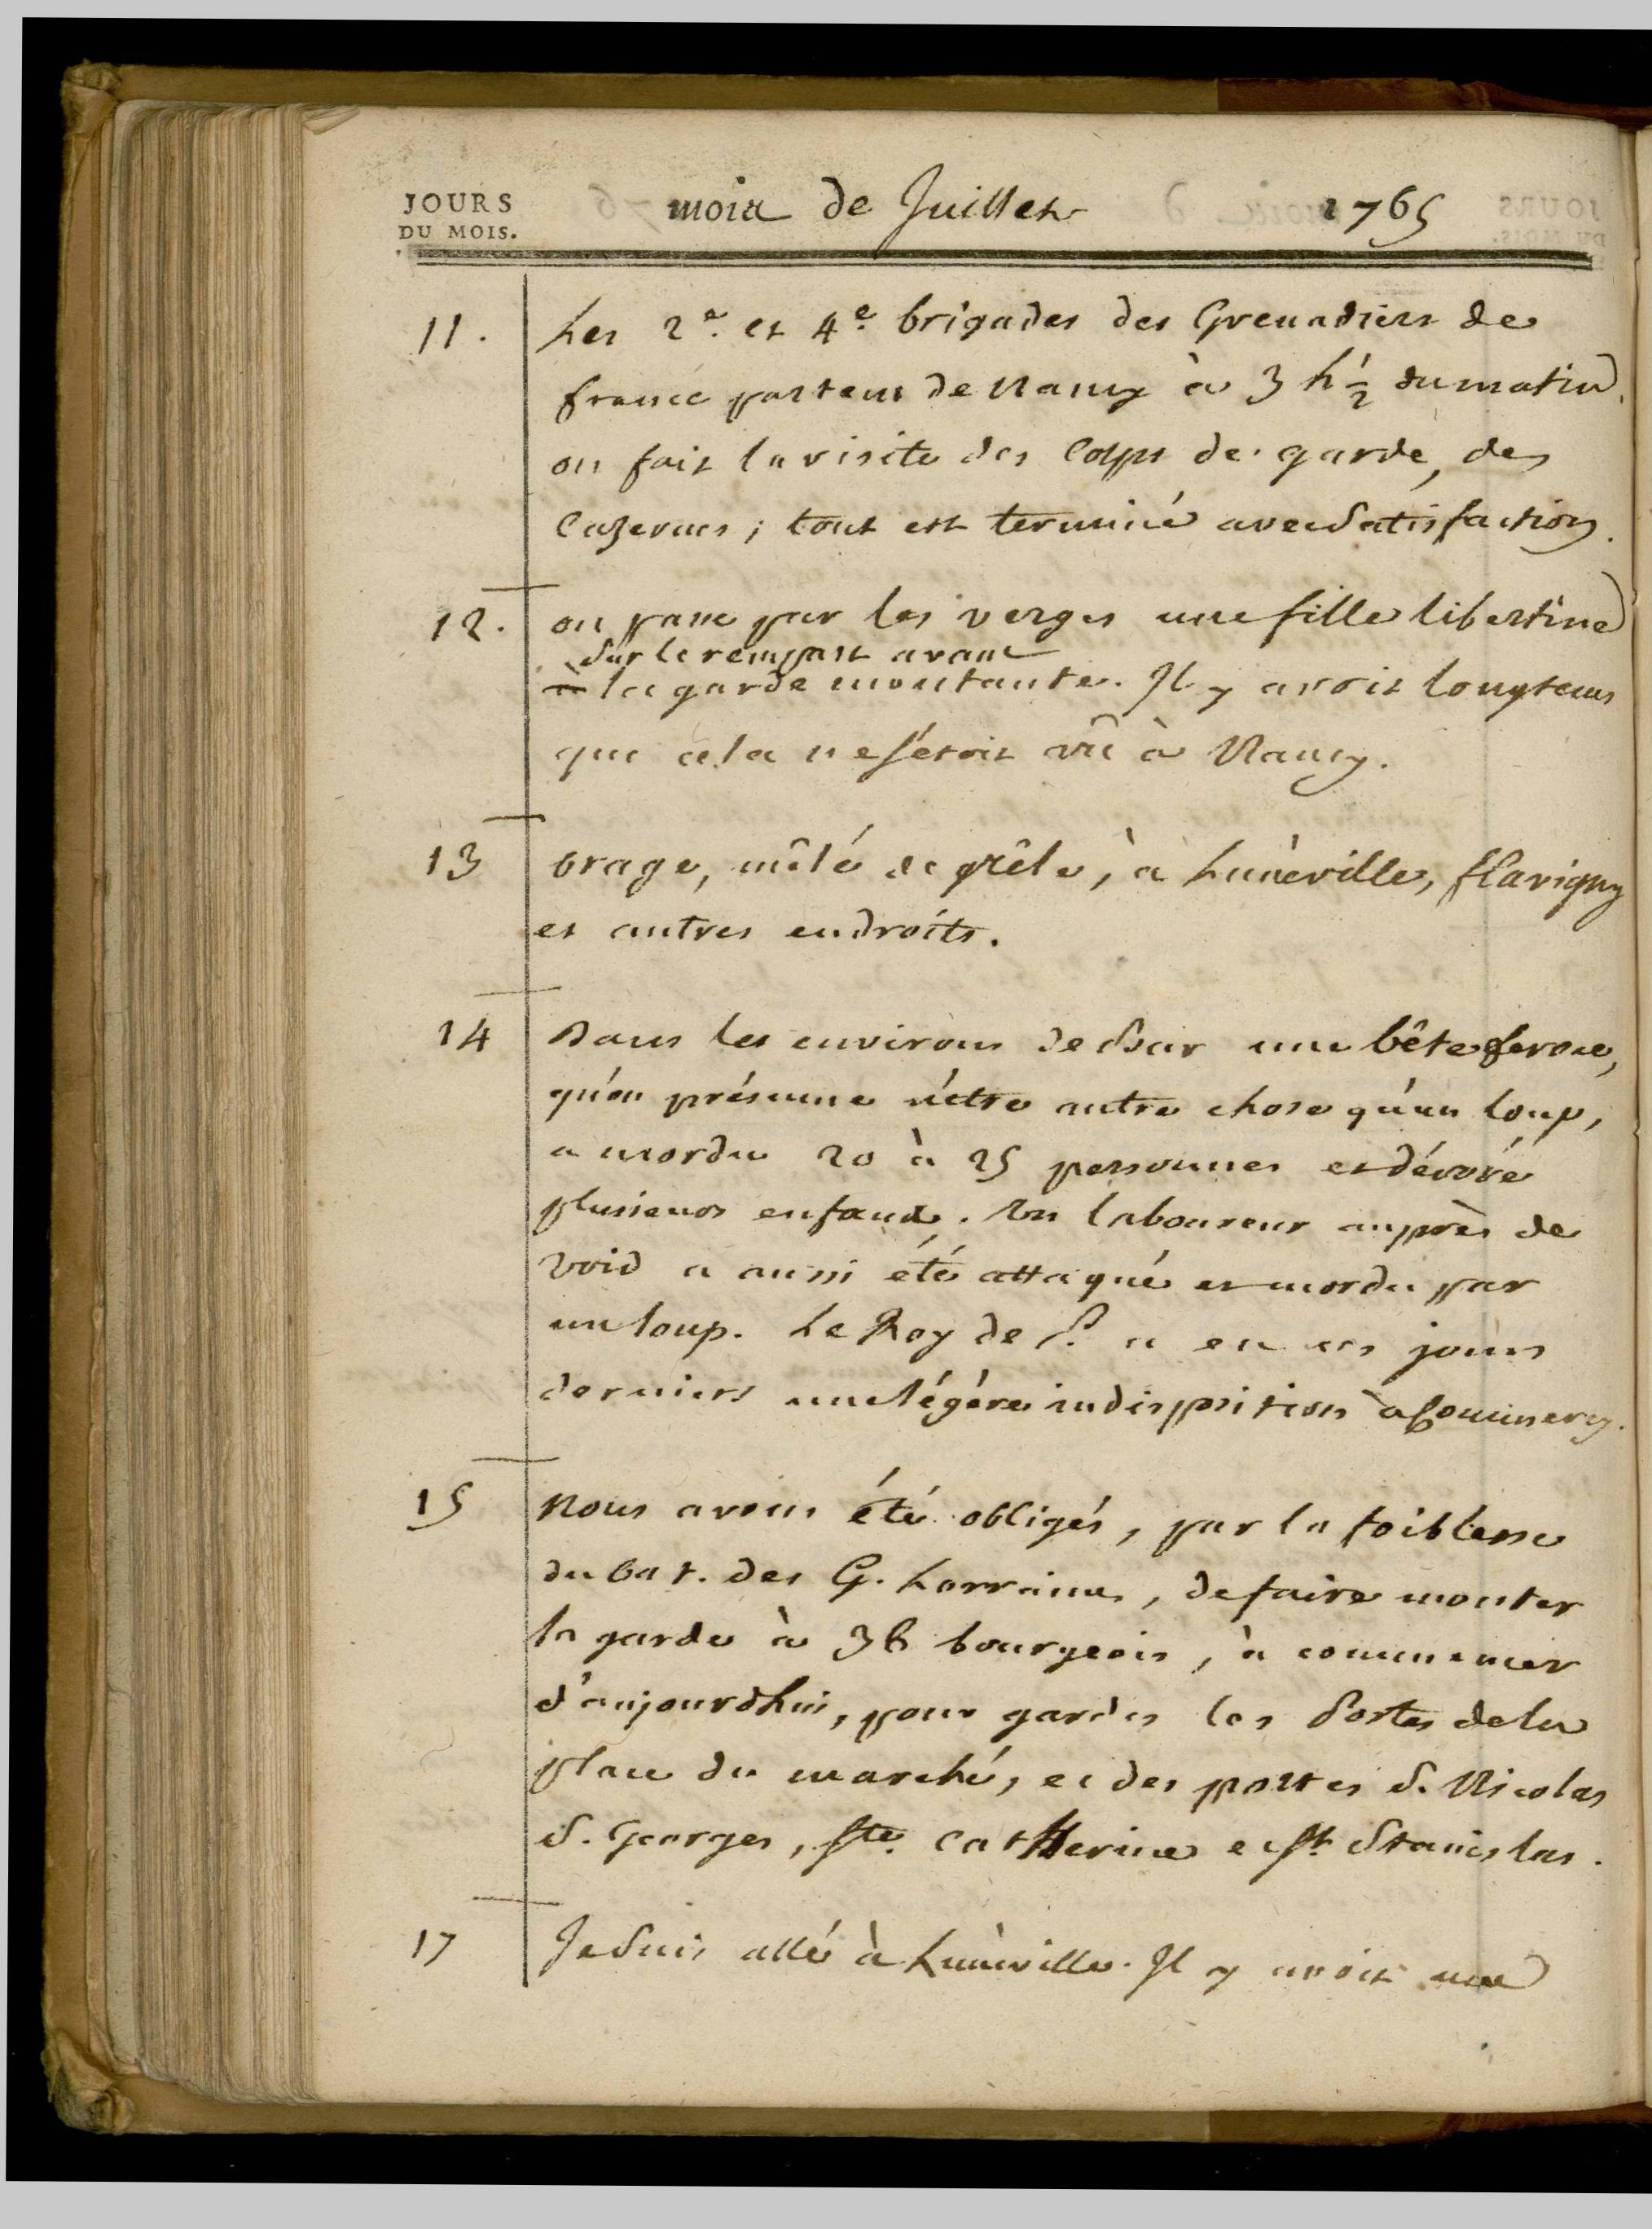 JOURS
DU MOIS.
mois de Juillet 1765
11. Les 2e. et 4e. brigades des Grenadiers de
france partent de Nancy à 3 h 1/2 du matin.
on fait la visite des Corps de garde, des
Cazernes ; tout est terminé avec Satisfaction.
12. on passe par les verges une fille libertine
Sur le rempart avant
la garde montante. Il y avoit longtems
que cela ne s'étoit vû à Nancy.
13 Orage, mêlé de grêle, à Lunéville, flavigny
et autres endroits.
14 Dans les environs de Bar une bête feroce,
qu'on présume n'être autre chose qu'un loup,
a mordu 20 à 25 personnes et dévoré
plusieurs enfants. Un laboureur auprès de
Void a aussi été attaqué et mordu par
un loup. Le Roy de P. a eu ces jours
derniers une légère indisposition à Commercy.
15 Nous avons été obligés, par la foiblesse
du bat. des G. Lorraines, de faire monter
la garde à 36 bourgeois, à commencer
d'aujourdhui, pour garder les Postes de la
place du marché, et des portes S. Nicolas
S. Georges, Ste. Catherine et St Stanislas.
17 Je Suis allé à Lunéville. Il y avoit une